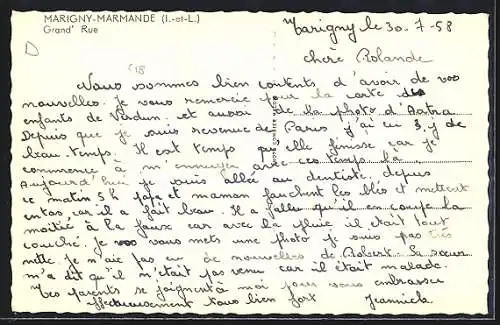 MARIGNY-MARMANDE (I.-et-L.)
Grand' Rue
Marigny le 30-7-58
chère Rolande
Nous sommes bien contents d'avoir de vos
nouvelles. je vous remercie pour la carte des
enfants de Verdun. et aussi de la photo d'
Depuis que je suis revenue de Paris j'ai eu 3 j de
beau temps. Il est temps qu'elle finisse car je
commence à m'ennuyer avec ces temps là.
Aujourd'hui je suis allée au dentiste. depuis
ce matin 5h papa et maman fauchent les blés et mettent
en tas, car il a fait beau. Il a fallu qu'il en coupe la
moitié à la faux car avec la pluie il était tout
couché. je vous mets une photo je suis pas très
nette. je n'ai pas eu de nouvelles de Robert. Sa sœur
m'a dit qu'il n'était pas venu car il était malade.
Mes parents se joignent à moi pour vous embrasser
affectueusement tous bien fort Jeannick